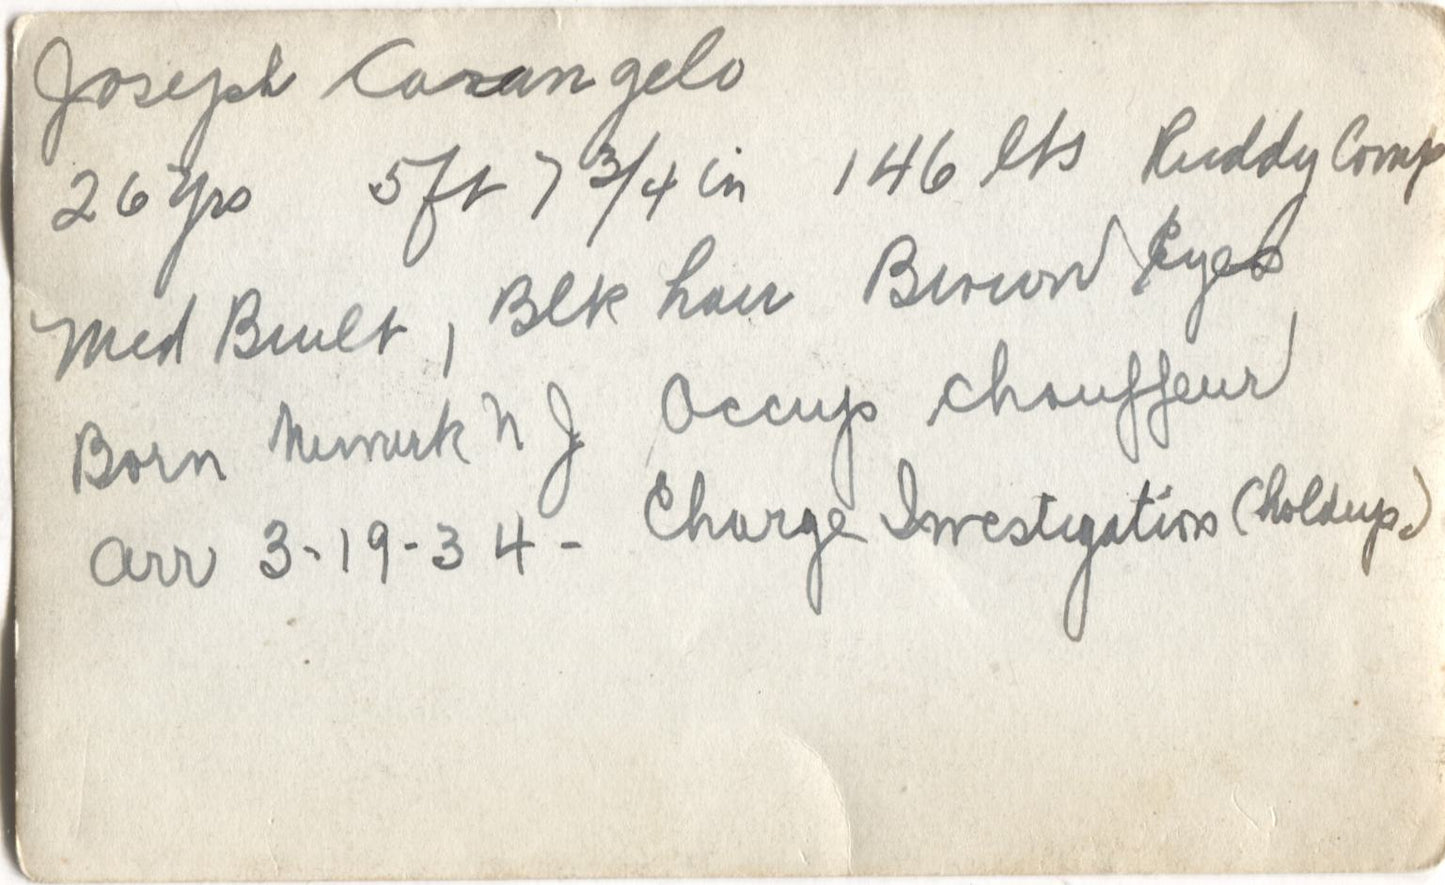 Joseph Carangelo
26 Yrs 5ft 7 3/4 in 146 lbs Ruddy Comp
Med Built, Blk hair Brown Eyes
Born Newark N J Occup chauffeur
Arr 3-19-34- Charge Investigation (holdups.)